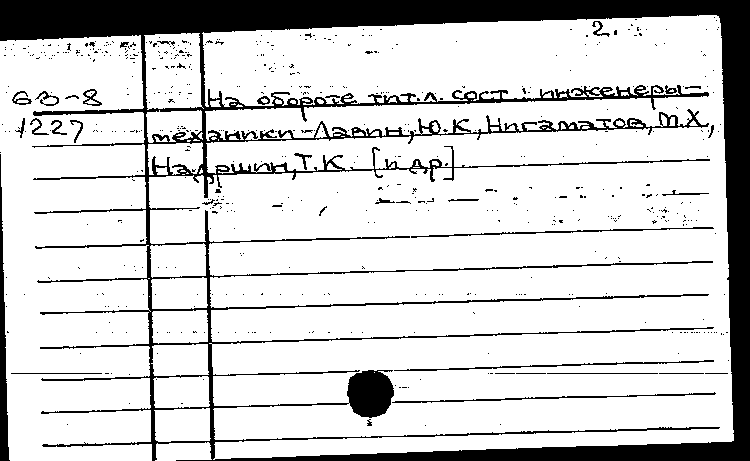 2.
63-8 На обороте тит.л. сост.: инженеры-
1227 механики-Лавин, Ю.К., Нигаматов, М.Х,
Надршин, Т.К. [и др.]